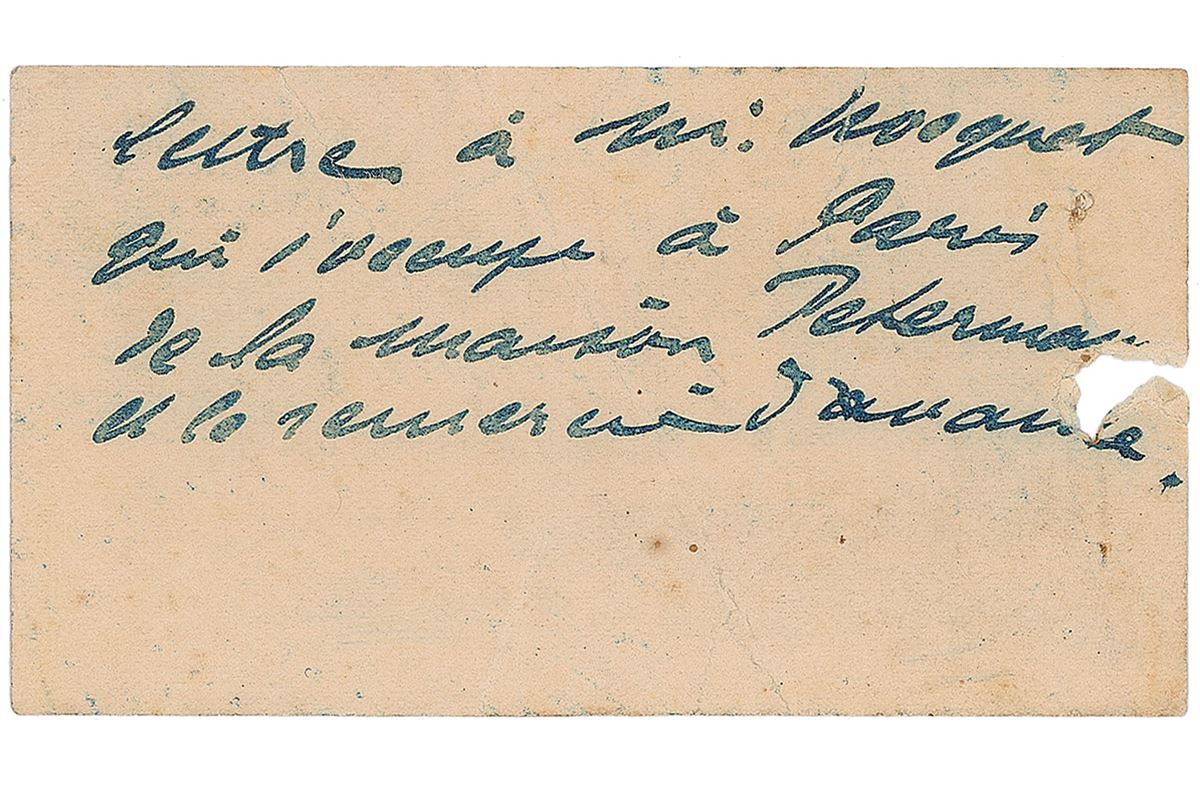 lettre à M. Bosquet
qui s'occupe à Paris
de la maison Peterman
et le remercie d'avance.